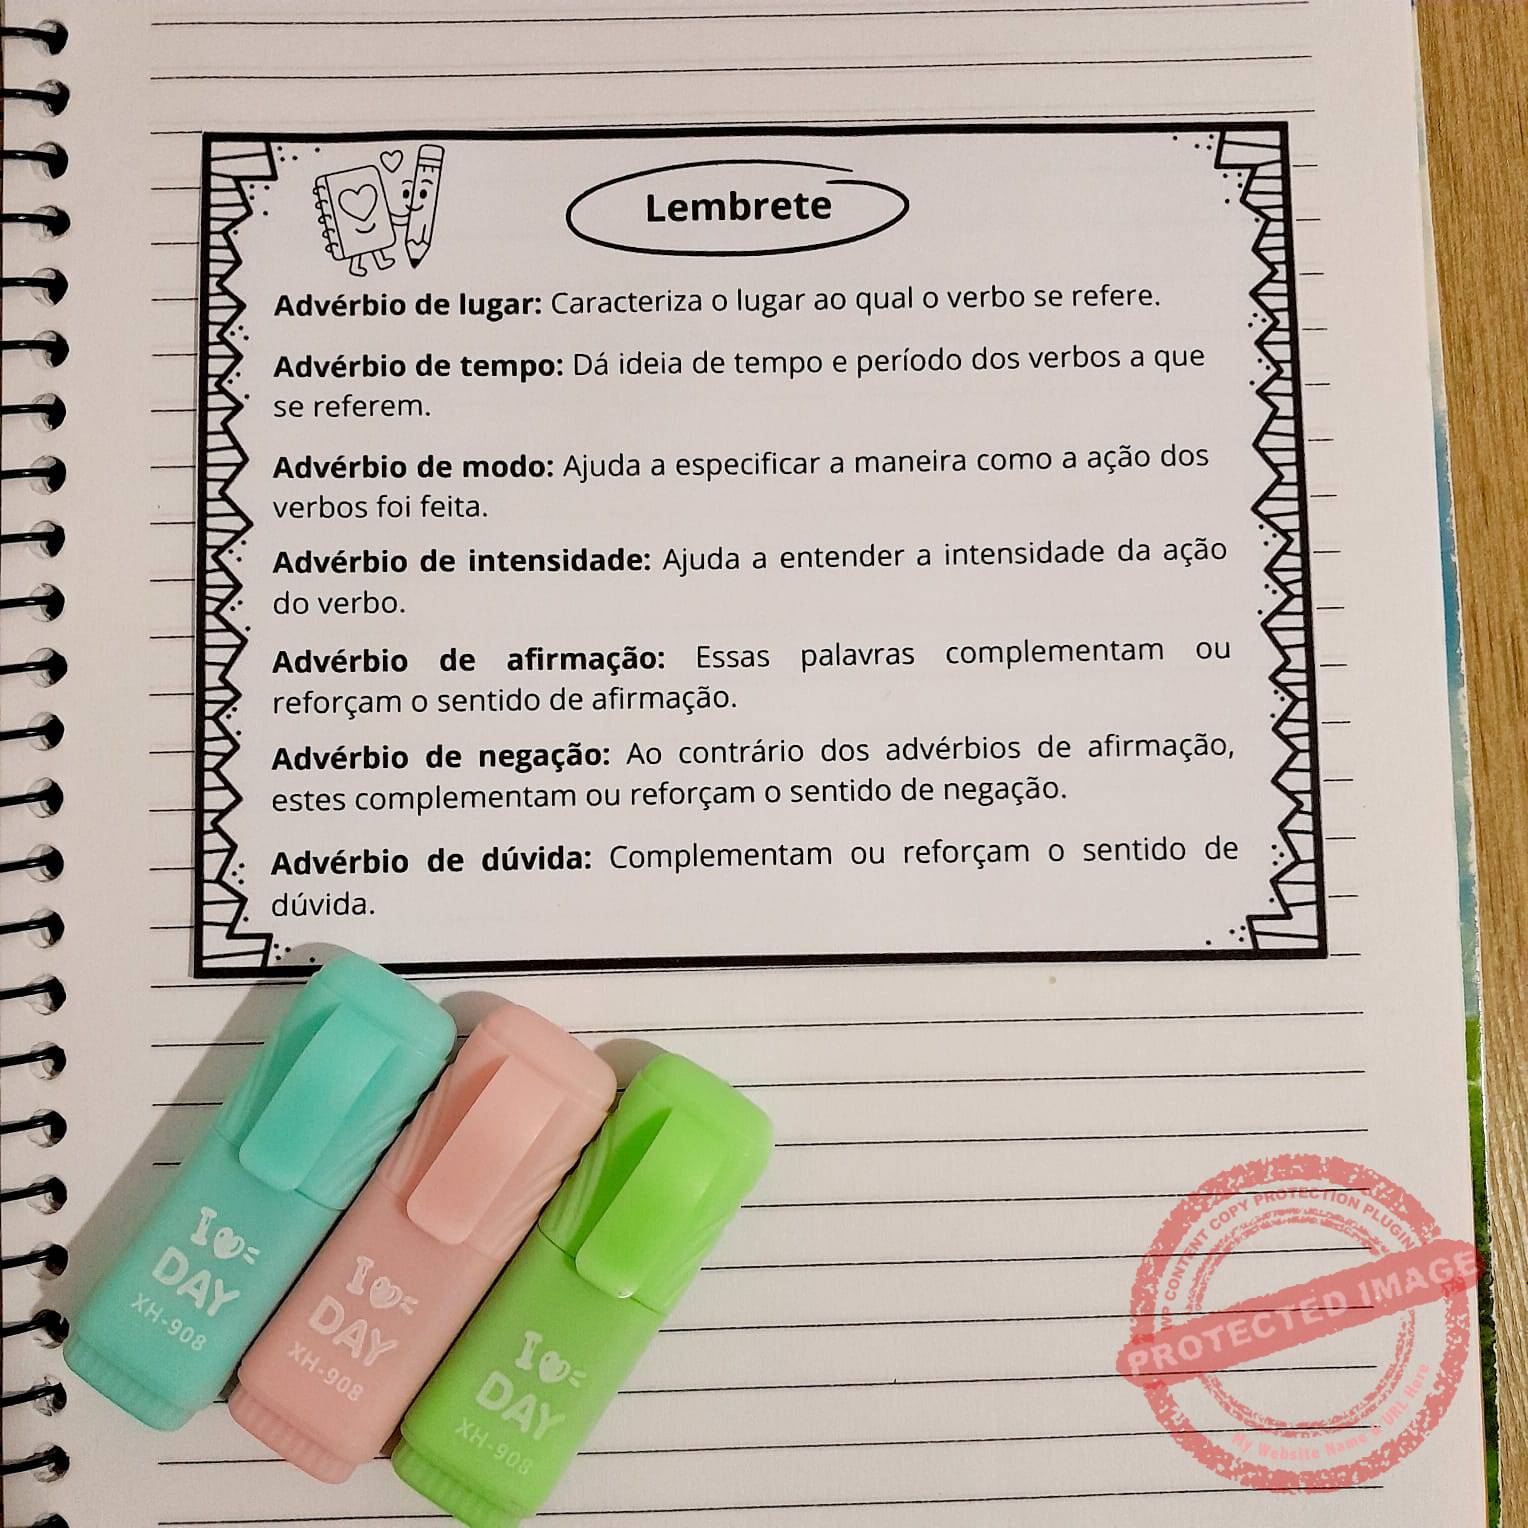 Lembrete
Advérbio de lugar: Caracteriza o lugar ao qual o verbo se refere.
Advérbio de tempo: Dá ideia de tempo e período dos verbos a que
se referem.
Advérbio de modo: Ajuda a especificar a maneira como a ação dos
verbos foi feita.
Advérbio de intensidade: Ajuda a entender a intensidade da ação
do verbo.
Advérbio de afirmação: Essas palavras complementam ou
reforçam o sentido de afirmação.
Advérbio de negação: Ao contrário dos advérbios de afirmação,
estes complementam ou reforçam o sentido de negação.
Advérbio de dúvida: Complementam ou reforçam o sentido de
dúvida.
I
DAY
XH-908
I
DAY
XH-908
I
DAY
XH-908
WP CONTENT COPY PROTECTION PLUGIN
PROTECTED IMAGE
My Website Name & URL Here